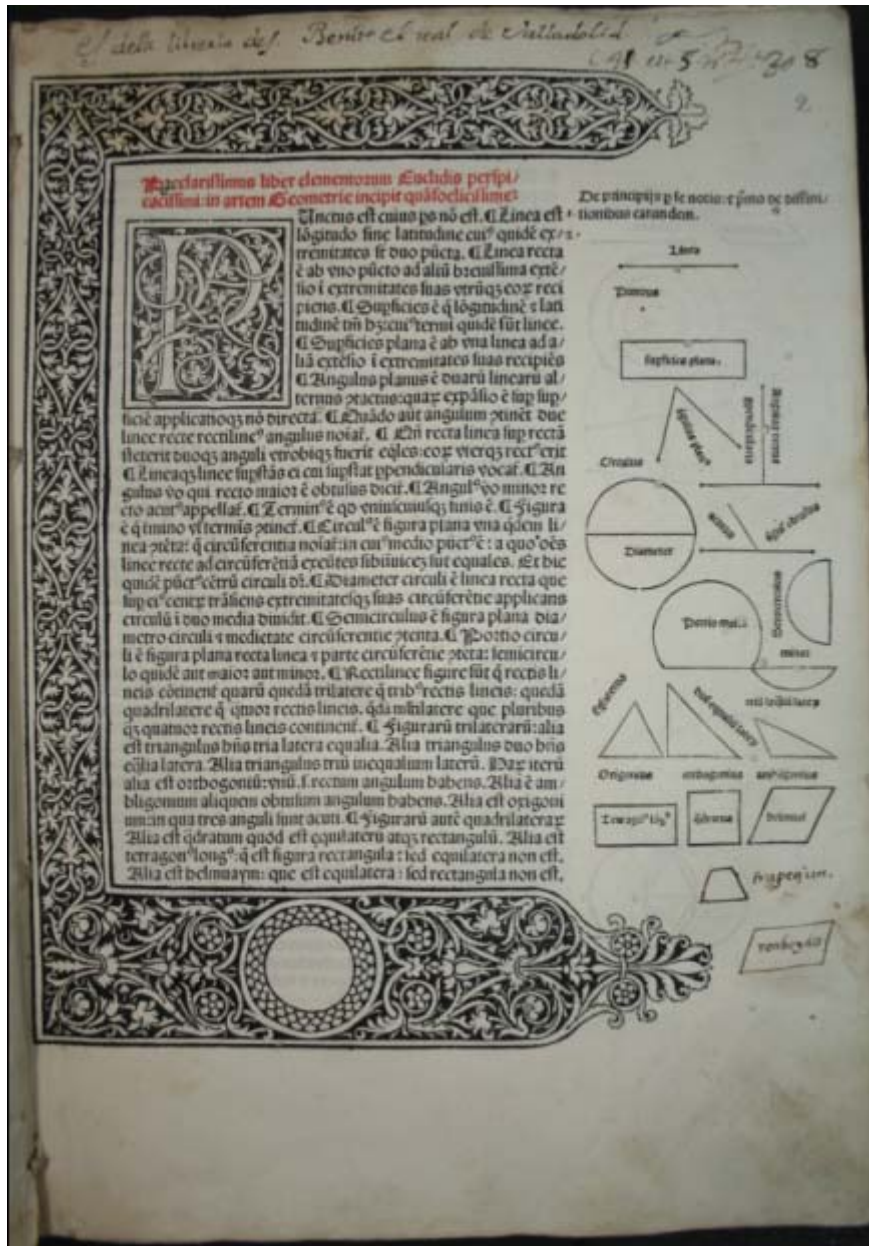 Es dela libreria de S. Benito el real de Valladolid
2
Preclarissimus liber elementorum Euclidis perspi/
cacissimi: in artem Geometrie incipit quãfoelicissime:
Unctus est cuius ps nõ est. ¶ Linea est
lõgitudo sine latitudine cuiꝰ quidẽ ex/
tremitates st duo pũcta. ¶ Linea recta
ẽ ab vno pũcto ad aliũ breuissima extẽ/
sio ĩ extremitates suas vtrũqꝫ eoꝝ reci
piens. ¶ Supficies ẽ q̃ lõgitudinẽ ⁊ lati
tudinẽ tm̃ hꝫ: cuiꝰ termi quidẽ sũt linee.
¶ Supficies plana ẽ ab vna linea ad a/
liã extẽsio ĩ extremitates suas recipiẽs
¶ Angulus planus ẽ duarũ linearũ al/
ternus ꝯtactus: quaꝝ expãsio ẽ sup sup/
ficiẽ applicatioqꝫ nõ directa. ¶ Quãdo aut angulum ꝯtinẽt due
linee recte rectilineꝰ angulus noiať. ¶ Qñ recta linea sup rectã
steterit duoqꝫ anguli vtrobiqꝫ fuerit eq̃les: eoꝝ vterqꝫ rectꝰ erit
¶ Lineaqꝫ linee supstãs ei cui supstat ppendicularis vocať. ¶ An
gulus vo qui recto maior ẽ obtusus diciť. ¶ Angulꝰ vo minor re
cto acutꝰ appellať. ¶ Terminꝰ ẽ qd vniuscuiusqꝫ finis ẽ. ¶ Figura
ẽ q̃ tmino vl termis ꝯtineť. ¶ Circulꝰ ẽ figura plana vna q̃dem li/
nea ꝯtẽta: q̃ circũferentia noiať: in cuiꝰ medio pũctꝰ ẽ: a quo oẽs
linee recte ad circũferẽtiã exeũtes sibiinuicẽ sut equales. Et hic
quidẽ pũctꝰ cẽtrũ circuli dr̃. ¶ Diameter circuli ẽ linea recta que
sup eiꝰ centꝝ trãsiens extremitatesqꝫ suas circũferẽtie applicans
circulũ ĩ duo media diuidit. ¶ Semicirculus ẽ figura plana dia/
metro circuli ⁊ medietate circũferentie ꝯtenta. ¶ Portio circu/
li ẽ figura plana recta linea ⁊ parte circũferẽtie ꝯtẽta: semicircu/
lo quidẽ aut maior aut minor. ¶ Rectilinee figure sũt q̃ rectis li/
neis cõtinent quarũ quedã trilatere q̃ tribꝰ rectis lineis: quedã
quadrilatere q̃ qtuor rectis lineis. q̃dã mltilatere que pluribus
qꝫ quatuor rectis lineis continenť. ¶ Figurarũ trilaterarũ: alia
est triangulus hñs tria latera equalia. Alia triangulus duo hñs
eq̃lia latera. Alia triangulus triũ inequalium laterũ. Haꝝ iterũ
alia est orthogoniũ: vnũ .s. rectum angulum habens. Alia ẽ am/
bligonium aliquem obtusum angulum habens. Alia est oxigoni
um: in qua tres anguli sunt acuti. ¶ Figurarũ autẽ quadrilateraꝝ
Alia est q̃dratum quod est equilaterũ atqꝫ rectangulũ. Alia est
tetragonꝰ longꝰ: q̃ est figura rectangula: sed equilatera non est.
Alia est helmuaym: que est equilatera: sed rectangula non est.
De principijs p se notis: ⁊ pmo de diffini/
tionibus earundem.
Linea
Punctus
supficies plana.
Circulus
Diameter
Portio maior
minor
Oxigonius
orthogonius
ambligonius
q̃dratus
trapeẓiun.